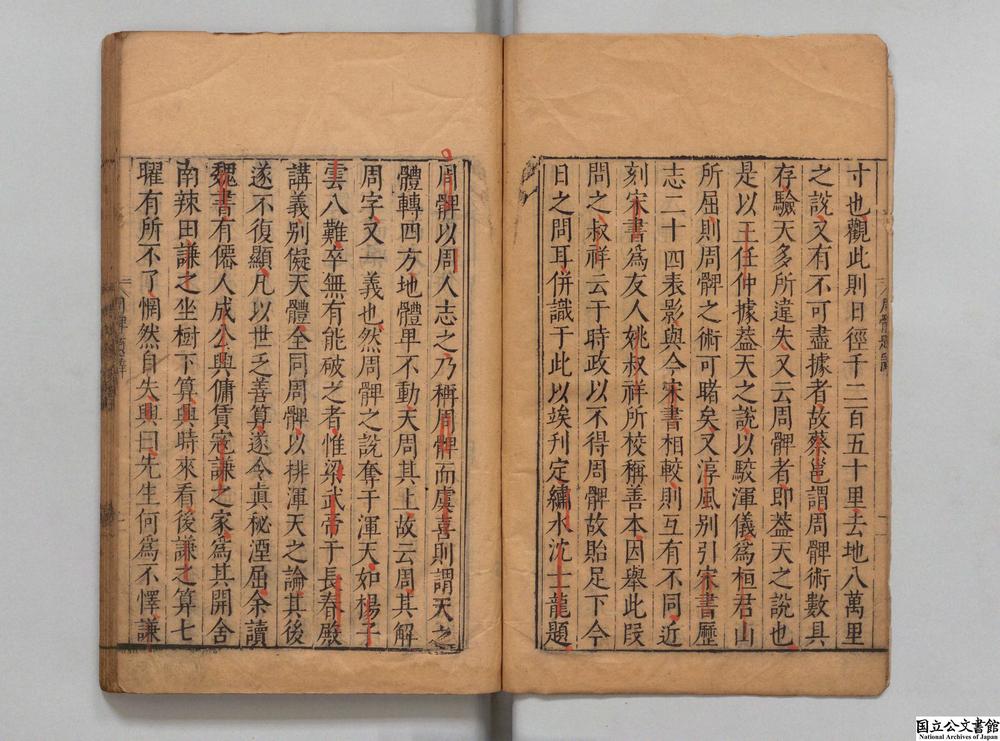 寸也觀此則日徑千二百五十里去地八萬里
之說又有不可盡據者故蔡邕謂周髀術數具
存驗天多所違失又云周髀者即葢天之說也
是以王任仲據葢天之說以駮渾儀爲桓君山
所屈則周髀之術可睹矣又淳風别引宋書歷
志二十四表影與今宋書相較則互有不同近
刻宋書爲友人姚叔祥所校稱善本因舉此叚
問之叔祥云于時政以不得周髀故貽足下今
日之問耳併識于此以竢刊定繡水沈士龍題
周髀以周人志之乃稱周髀而虞喜則謂天之
體轉四方地體卑不動天周其上故云周其解
周字又一義也然周髀之說奪于渾天如楊子
雲八難卒無有能破之者惟梁武帝于長春殿
講義别儗天體全同周髀以排渾天之論其後
遂不復顯凡以世乏善算遂令眞秘湮屈余讀
魏書有僊人成公興傭賃寇謙之家爲其開舍
南辣田謙之坐樹下算興時來看後謙之算七
曜有所不了惘然自失興曰先生何爲不懌謙
国立公文書館
National Archives of Japan